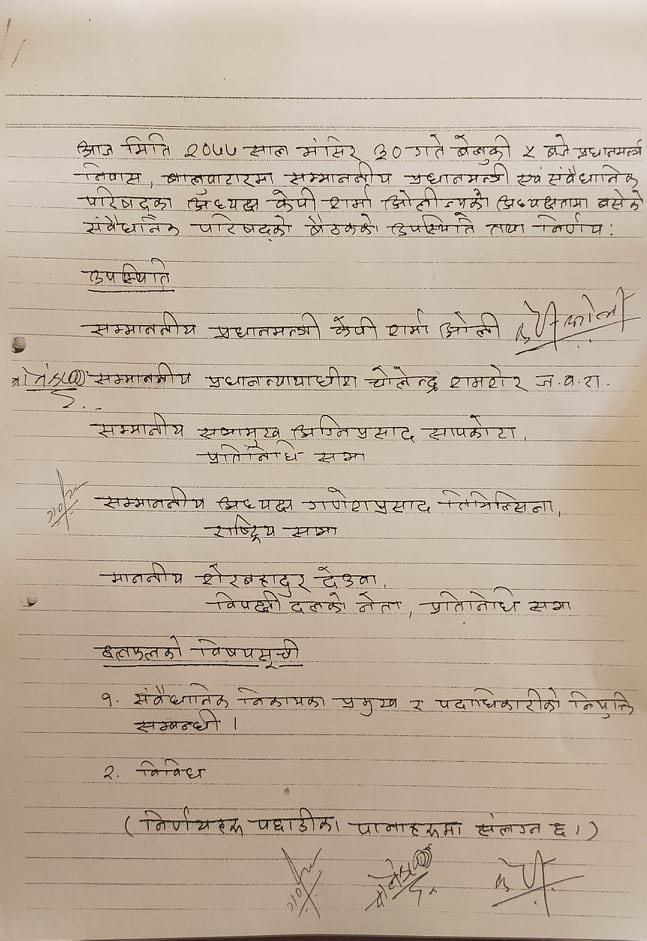 आज मिति २०७७ साल मंसिर ३० गते बेलुकी ५ बजे प्रधानमन्त्री
निवास, बालुवाटारमा सम्माननीय प्रधानमन्त्री एवं संवैधानिक
परिषद्का अध्यक्ष केपी शर्मा ओली ज्यूको अध्यक्षतामा बसेको
संवैधानिक परिषद्को बैठकको उपस्थिति तथा निर्णय:
उपस्थिति
सम्माननीय प्रधानमन्त्री केपी शर्मा ओली
सम्माननीय प्रधानन्यायाधीश चोलेन्द्र शमशेर ज.ब.रा.
सम्मानीय सभामुख अग्निप्रसाद सापकोटा,
प्रतिनिधि सभा
सम्माननीय अध्यक्ष गणेशप्रसाद तिमिल्सिना,
राष्ट्रिय सभा
माननीय शेरबहादुर देउवा,
विपक्षी दलको नेता, प्रतिनिधि सभा
छलफलको विषयसूची
१. संवैधानिक निकायका प्रमुख र पदाधिकारीको नियुक्ति
सम्बन्धी।
२. विविध
(निर्णयहरू पछाडीका पानाहरूमा संलग्न छ।)